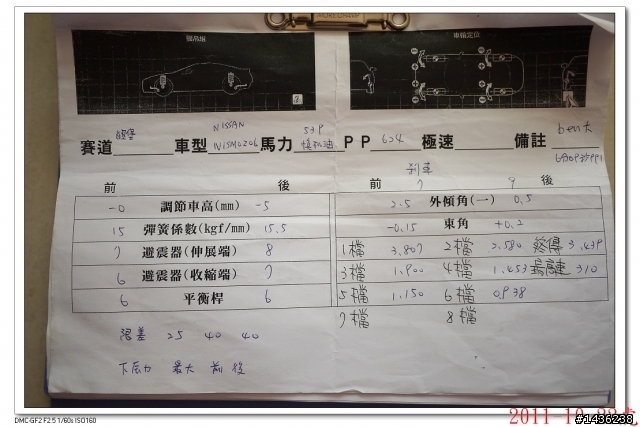 車輪定位
NISSAN 539
賽道 車型 NISMO Z06 馬力 PP 624 極速 備註
剎車
前 後 前 7 9 後
-0 調節車高(mm) -5 2.5 外傾角(一) 0.5
15 彈簧係數(kgf/mm) 15.5 -0.15 束角 +0.2
7 避震器(伸展端) 8 1檔 3.807 2檔 2.580 終傳 3.439
6 避震器(收縮端) 7 3檔 1.900 4檔 1.453 最高速 310
6 平衡桿 6 5檔 1.150 6檔 0.938
7檔 8檔
限差 25 40 40
下压力 最大 前 後
DMC-GF2 F2.5 1/60s ISO160
2011-10-22
#1436238